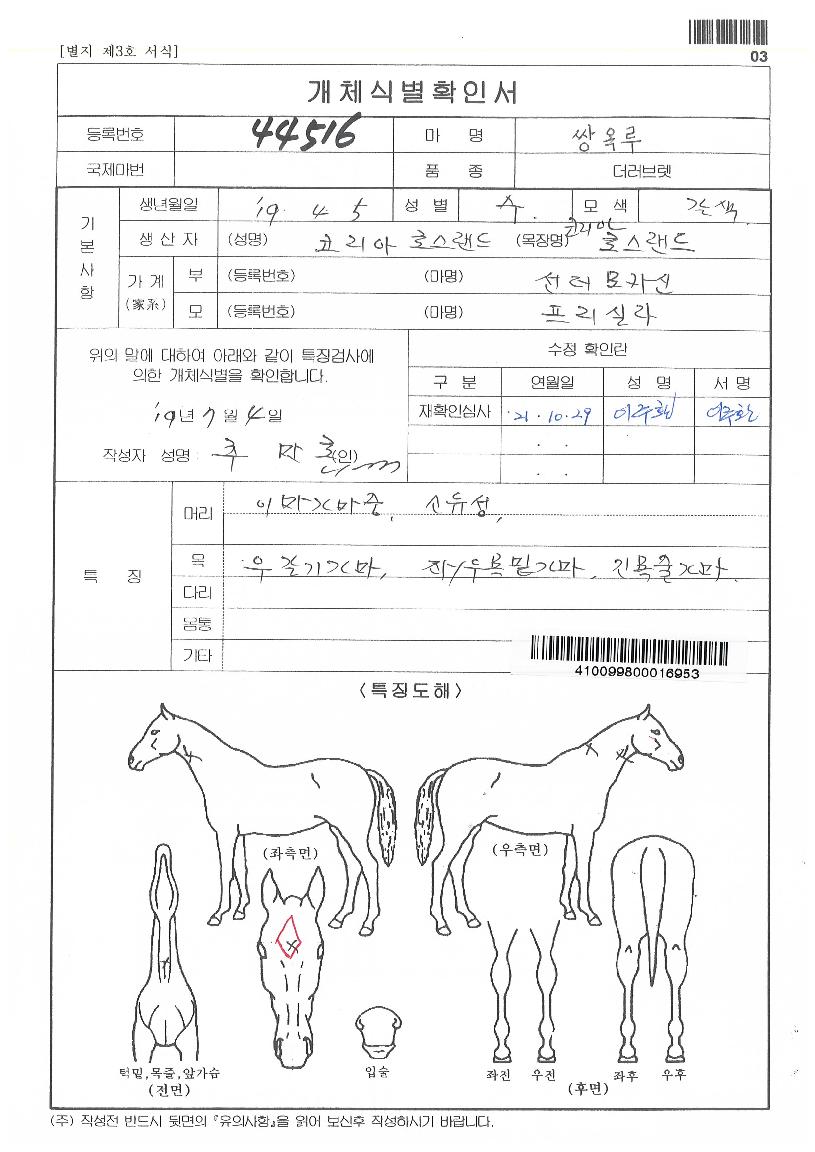 [별지 제3호 서식]
03
개체식별확인서
등록번호 44516 마 명 쌍옥루
국제마번 품 종 더러브렛
기본사항
생년월일 '19. 4 5 성 별 수. 모 색 갈색.
생 산 자 (성명) 코리아 홀스랜드 (목장명) 코리아 홀스랜드
가 계 (家系)
부 (등록번호) (마명) 선더모카신
모 (등록번호) (마명) 프리실라
위의 말에 대하여 아래와 같이 특징검사에
의한 개체식별을 확인합니다.
'19년 7월 4일
작성자 성명 : (인)
수정 확인란
구 분 연월일 성 명 서 명
재확인심사 21.10.29 이주환 이주환
. .
. .
특 징
머리 이마가마중, 소유성,
목 우갈기가마, 좌/우목밑가마, 긴목줄가마.
다리
몸통
기타
410099800016953
<특징도해>
(좌측면)
(우측면)
턱밑,목줄,앞가슴
(전면)
입술
좌전 우전
좌후 우후
(후면)
(주) 작성전 반드시 뒷면의 『유의사항』을 읽어 보신후 작성하시기 바랍니다.